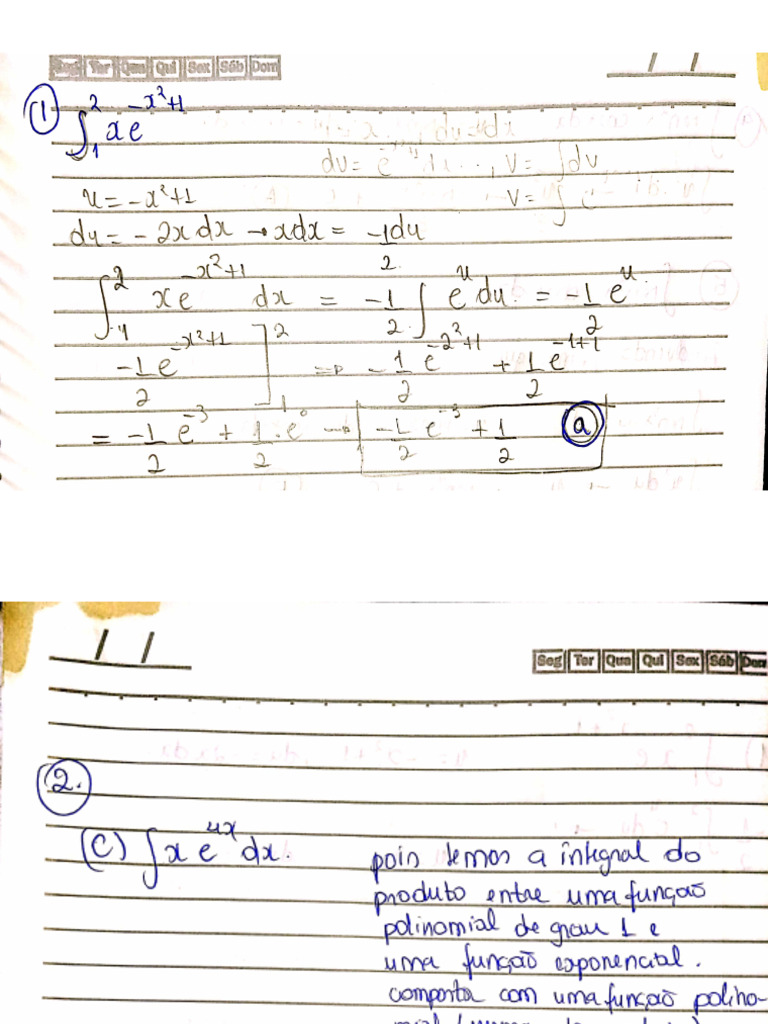 Seg Ter Qua Qui Sex Sáb Dom / /
① ∫₁² xe^(-x²+1)
u = -x²+1
du = -2x dx → xdx = -1/2 du
∫₁² xe^(-x²+1) dx = -1/2 ∫ e^u du = -1/2 e^u
-1/2 e^(-x²+1) ]₁² ⇒ -1/2 e^(-2²+1) + 1/2 e^(-1+1)
= -1/2 e^(-3) + 1/2 . e^0 → -1/2 e^(-3) + 1/2 (a)
/ / Seg Ter Qua Qui Sex Sáb Dom
2.
(C) ∫ x e^(4x) dx. pois temos a integral do
produto entre uma função
polinomial de grau 1 e
uma função exponencial.
composta com uma função polino-